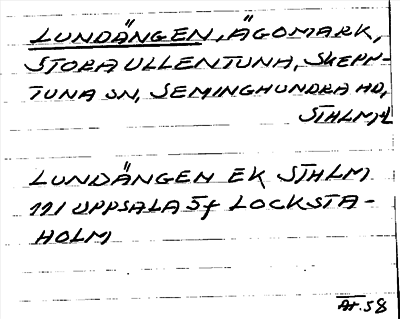 LUNDÄNGEN, ÄGOMARK,
STORA ULLENTUNA, SKEPP-
TUNA SN, SEMINGHUNDRA HD,
STHLM,L
LUNDÄNGEN EK STHLM
111 UPPSALA 5f LOCKSTA-
HOLM
58